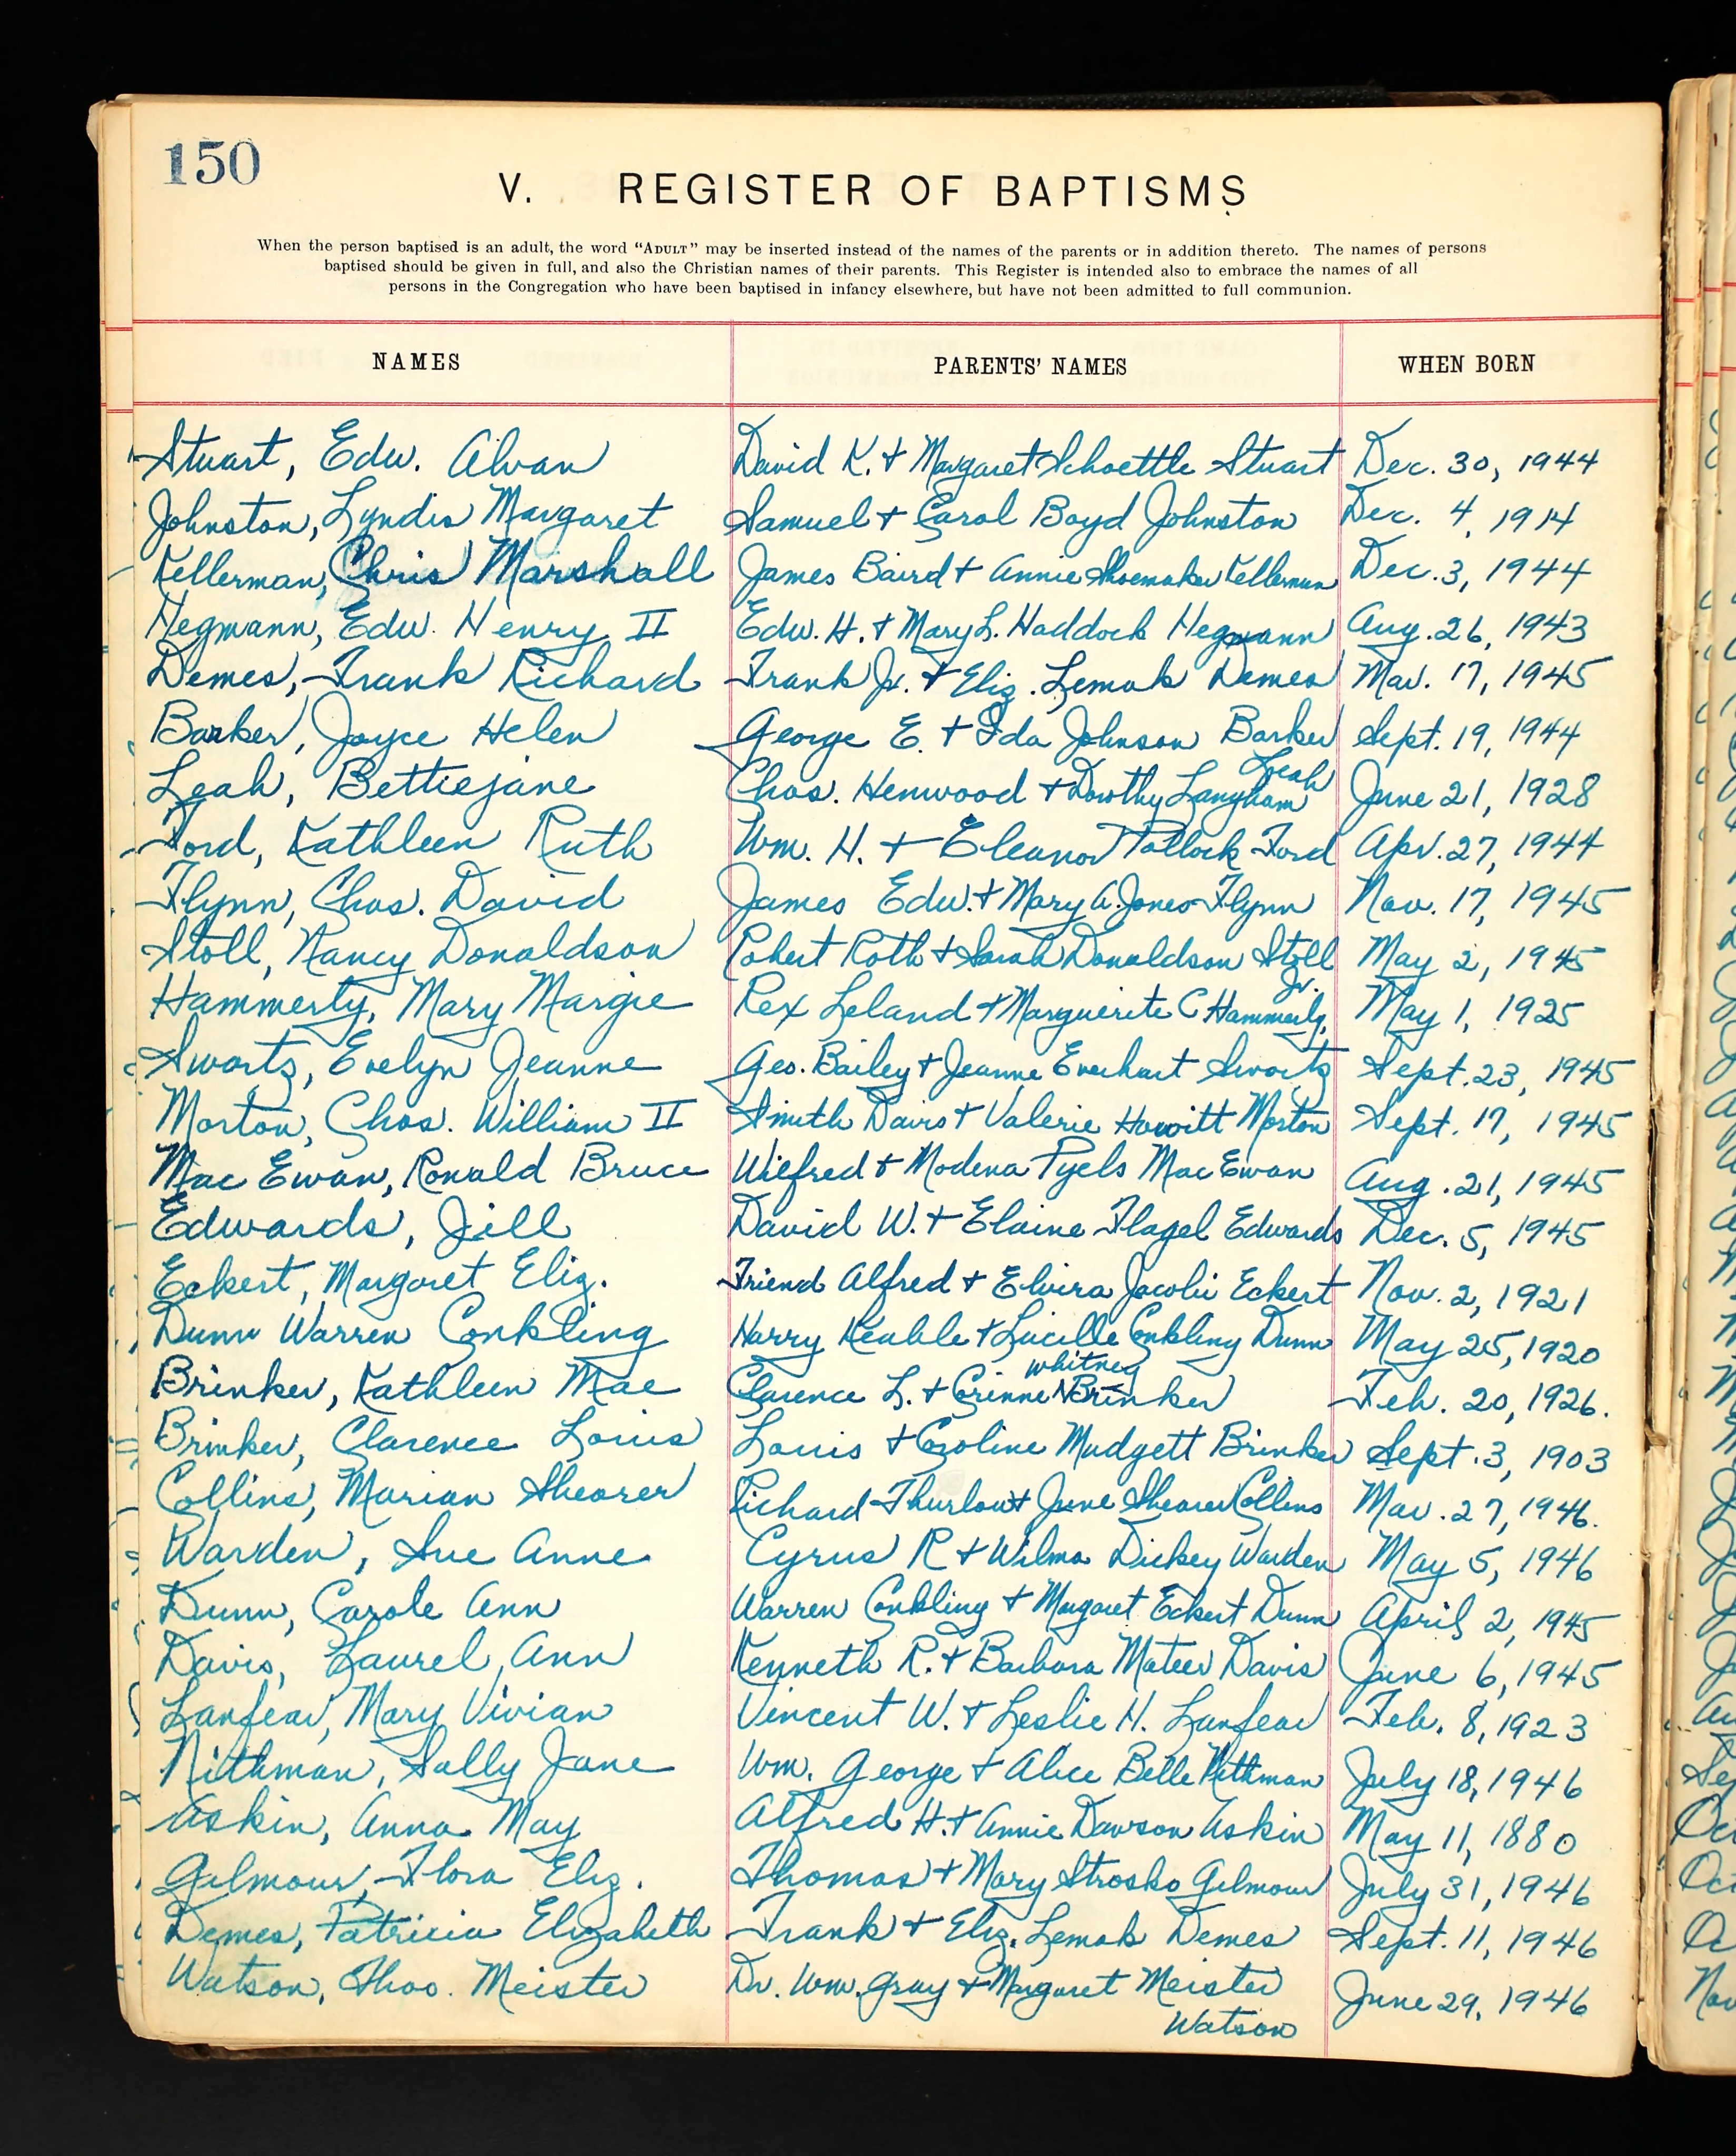 150
V. REGISTER OF BAPTISMS
When the person baptised is an adult, the word "ADULT" may be inserted instead of the names of the parents or in addition thereto. The names of persons
baptised should be given in full, and also the Christian names of their parents. This Register is intended also to embrace the names of all
persons in the Congregation who have been baptised in infancy elsewhere, but have not been admitted to full communion.
NAMES PARENTS' NAMES WHEN BORN
Stuart, Edw. Alvan David K. + Margaret Schoettle Stuart Dec. 30, 1944
Johnston, Lyndis Margaret Samuel + Carol Boyd Johnston Dec. 4, 1914
Kellerman, Chris Marshall James Baird + Annie Shoemaker Kellerman Dec. 3, 1944
Hegmann, Edw. Henry II Edw. H. + Mary L. Haddock Hegmann Aug. 26, 1943
Demes, Frank Richard Frank Jr. + Eliz. Lemak Demes Mar. 17, 1945
Barker, Joyce Helen George E. + Ida Johnson Barker Sept. 19, 1944
Leah, Bettiejane Chas. Henwood + Dorothy Langham Leah June 21, 1928
Ford, Kathleen Ruth Wm. H. + Eleanor Pollock Ford Apr. 27, 1944
Flynn, Chas. David James Edw. + Mary A. Jones Flynn Nov. 17, 1945
Stoll, Nancy Donaldson Robert Roth + Sarah Donaldson Stoll Jr. May 2, 1945
Hammerly, Mary Margie Rex Leland + Marguerite C Hammerly, May 1, 1925
Swartz, Evelyn Jeanne Geo. Bailey + Jeanne Everhart Swartz Sept. 23, 1945
Morton, Chas. William II Smith Davis + Valerie Howitt Morton Sept. 17, 1945
Mac Ewan, Ronald Bruce Wilfred + Modena Pyels Mac Ewan Aug. 21, 1945
Edwards, Jill David W. + Elaine Flagel Edwards Dec. 5, 1945
Eckert, Margaret Eliz. Friend Alfred + Elvira Jacobi Eckert Nov. 2, 1921
Dunn Warren Conkling Harry Keable + Lucille Conkling Dunn May 25, 1920
Brinker, Kathleen Mae Clarence L. + Corinne Whitney Brinker Feb. 20, 1926.
Brinker, Clarence Louis Louis + Caroline Mudgett Brinker Sept. 3, 1903
Collins, Marian Shearer Richard Thurlow + June Shearer Collins Mar. 27, 1946.
Warden, Sue Anne Cyrus R + Wilma Dickey Warden May 5, 1946
Dunn, Carole Ann Warren Conkling + Margaret Eckert Dunn April 2, 1945
Davis, Laurel Ann Kenneth R. + Barbara Mateer Davis June 6, 1945
Lanfear, Mary Vivian Vincent W. + Leslie H. Lanfear Feb. 8, 1923
Nithman, Sally Jane Wm. George + Alice Belle Nithman July 18, 1946
Askin, Anna May Alfred H. + Annie Dawson Askin May 11, 1880
Gilmour, Flora Eliz. Thomas + Mary Strosko Gilmour July 31, 1946
Demes, Patricia Elizabeth Frank + Eliz. Lemak Demes Sept. 11, 1946
Watson, Thos. Meister Dr. Wm. Gray + Margaret Meister June 29, 1946
Watson